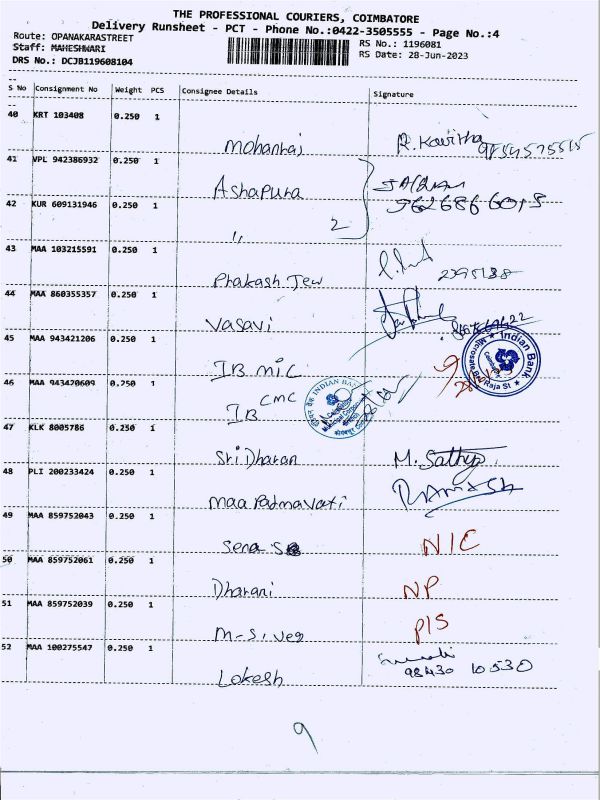 THE PROFESSIONAL COURIERS, COIMBATORE
Delivery Runsheet - PCT - Phone No.:0422-3505555 - Page No.:4
Route: OPANAKARASTREET RS No.: 1196081
Staff: MAHESHWARI RS Date: 28-Jun-2023
DRS No.: DCJB119608104
S No Consignment No Weight PCS Consignee Details Signature
40 KRT 103408 0.250 1
Mohanraj R. Kavitha
41 VPL 942386932 0.250 1
Ashapura
42 KUR 609131946 0.250 1
" 2
43 MAA 103215591 0.250 1
Prakash Jew 2395188
44 MAA 860355357 0.250 1
Vasavi
45 MAA 943421206 0.250 1
IB MIC
Indian Bank
46 MAA 943420609 0.250 1
IB CMC
INDIAN BANK
47 KLK 8005786 0.250 1
Sridharan M. Sathya
48 PLI 200233424 0.250 1
maa Padmavati RAMESH
49 MAA 859752043 0.250 1
Sena NIC
50 MAA 859752061 0.250 1
Dharani NP
51 MAA 859752039 0.250 1
P/S
52 MAA 100275547 0.250 1
Lokesh 98430 10530
9